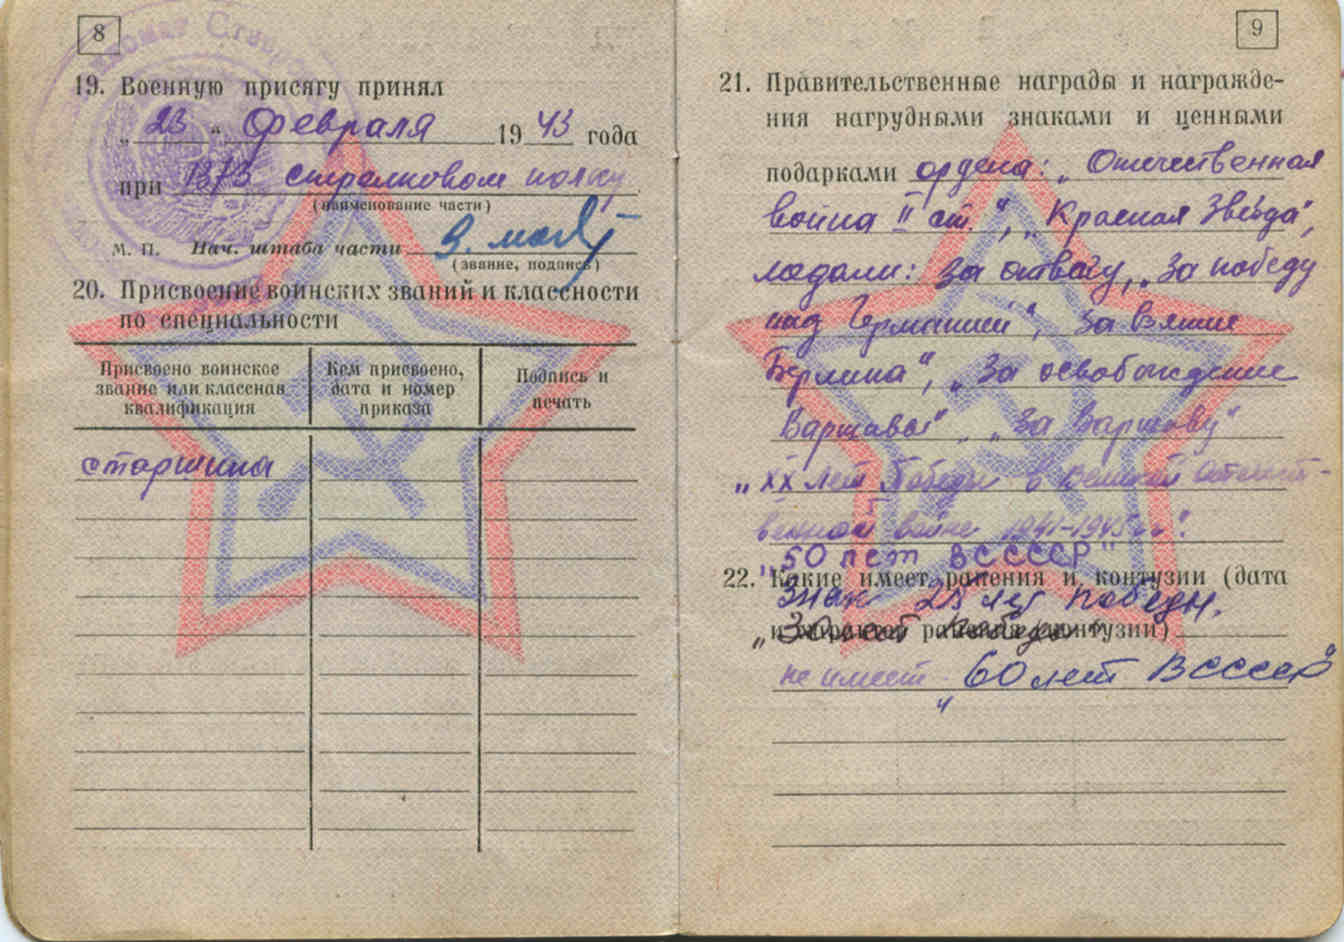 8
19. Военную присягу принял
„ 23 “ февраля 1943 года
при 1373 стрелковом полку
(наименование части)
М. П. Нач. штаба части
(звание, подпись)
20. Присвоение воинских званий и классности
по специальности
Присвоено воинское звание или классная квалификация
Кем присвоено, дата и номер приказа
Подпись и печать
старшина
9
21. Правительственные награды и награжде-
ния нагрудными знаками и ценными
подарками ордена: „Отечественная
война II ст.“, „Красная Звезда“,
медали: За отвагу, „За победу
над Германией“, За взятие
Берлина“, „За освобождение
Варшавы“, „За Варшаву“
„XX лет Победы в Великой Отечест-
венной войне 1941-1945 гг“.
„50 лет ВС СССР“
22. Какие имеет ранения и контузии (дата
Знак 25 лет победы.
и характер ранения контузии)
„30 лет Победы“
не имеет „60 лет ВС СССР“